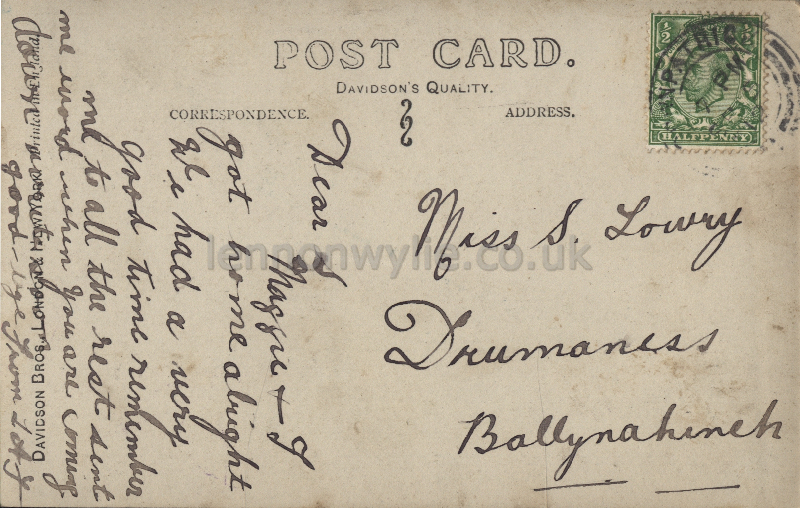 POST CARD.
DAVIDSON'S QUALITY.
CORRESPONDENCE.
ADDRESS.
HALFPENNY
Dear S
Maggie & I
got home alright
We had a very
good time remember
me to all the rest sent
me word when you are coming
down
good-bye from
Miss S. Lowry
Drumaness
Ballynahinch
DAVIDSON BROS., LONDON & NEW YORK. Printed in England.
lennonwylie.co.uk